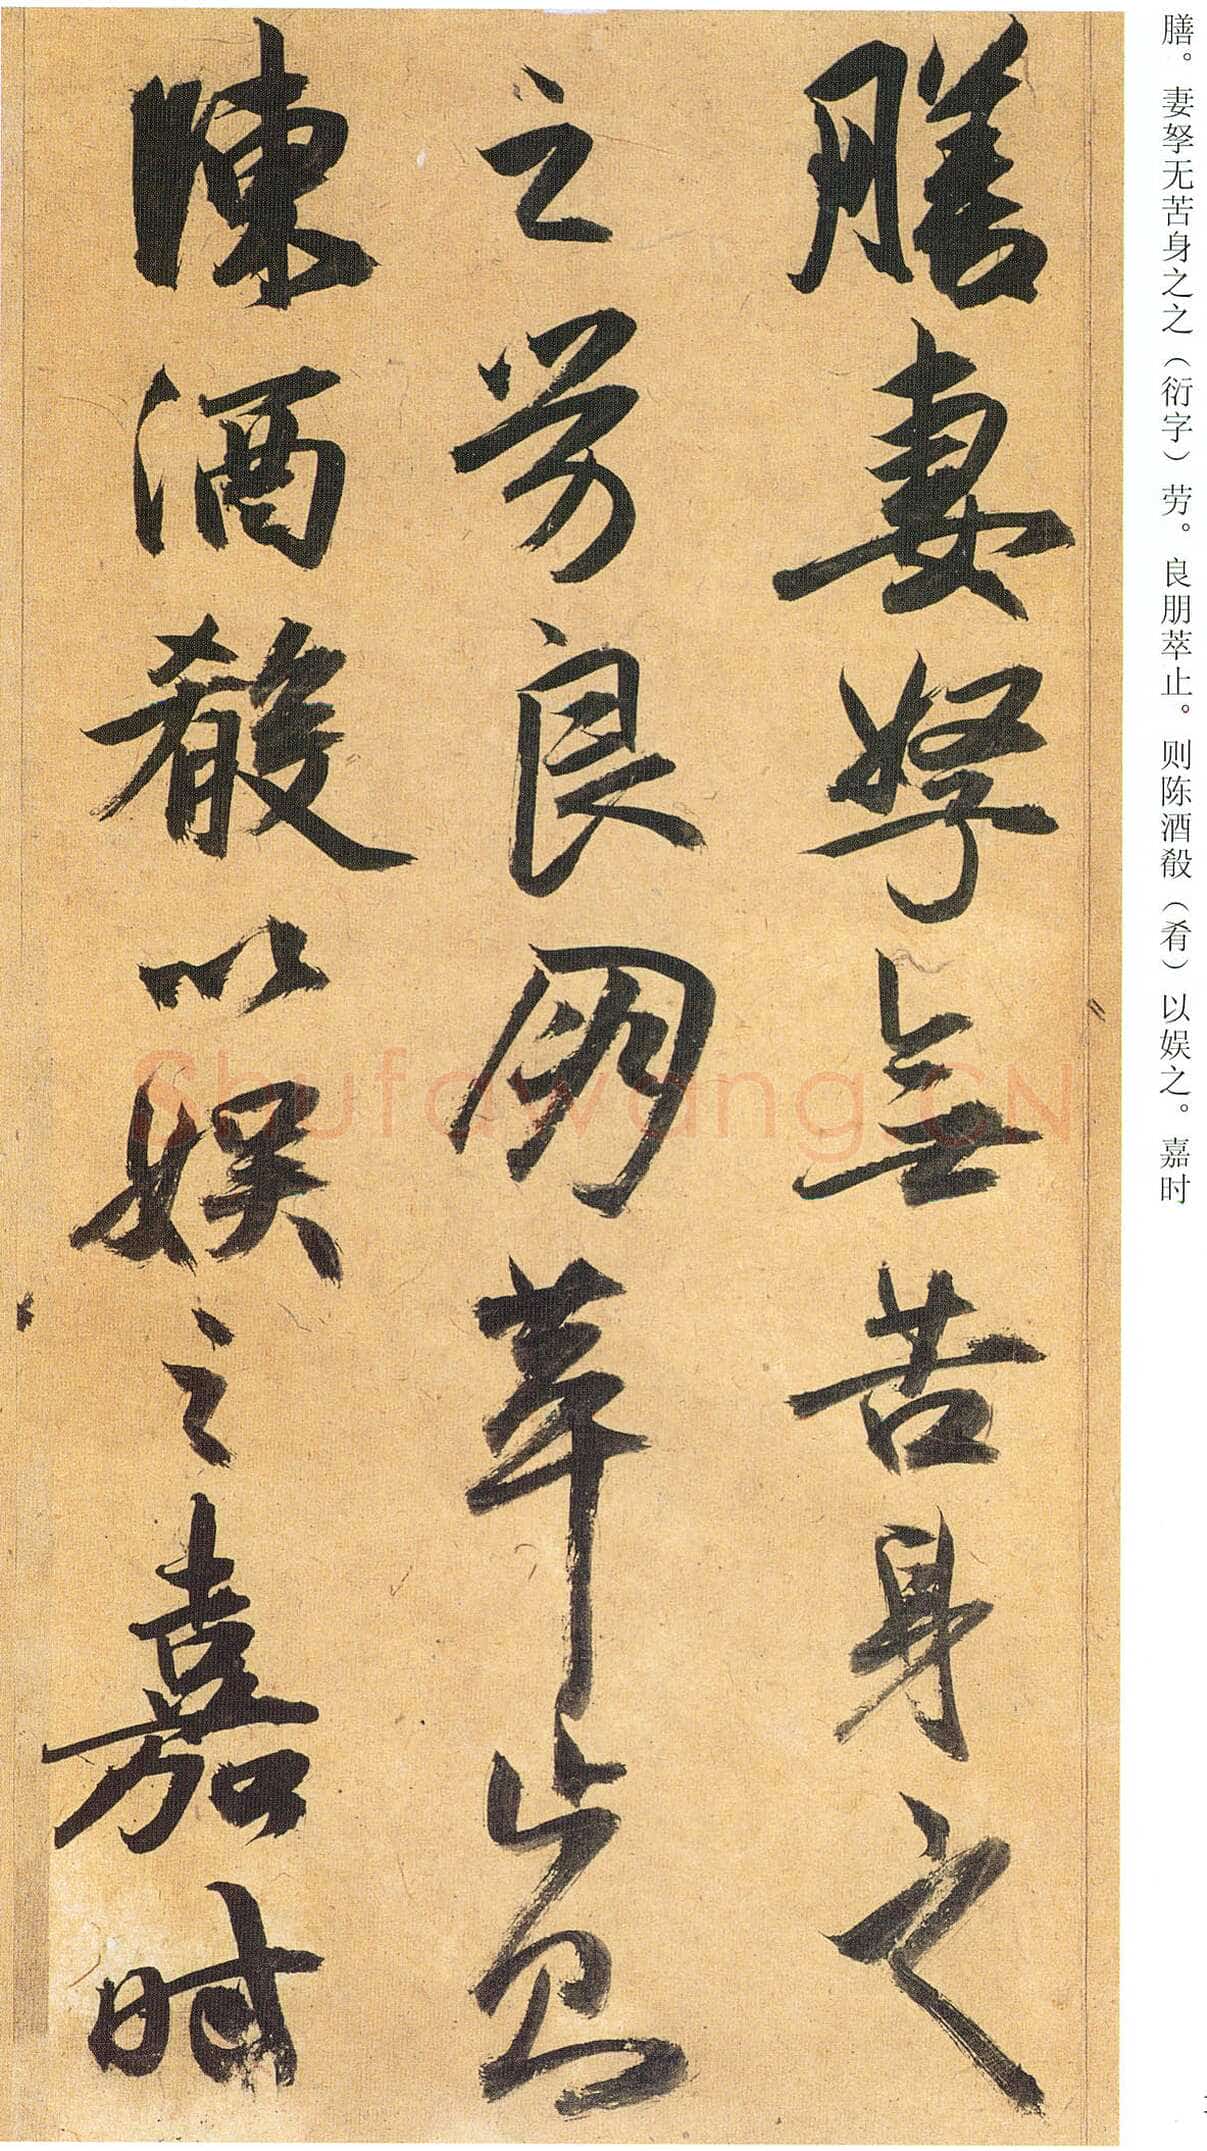 膳。妻孥无苦身之之（衍字）劳。良朋萃止。则陈酒殽（肴）以娱之。嘉时
膳妻孥無苦身之
之劳良朋萃止則
陳酒殽以娱之嘉时
Shufawang.CN